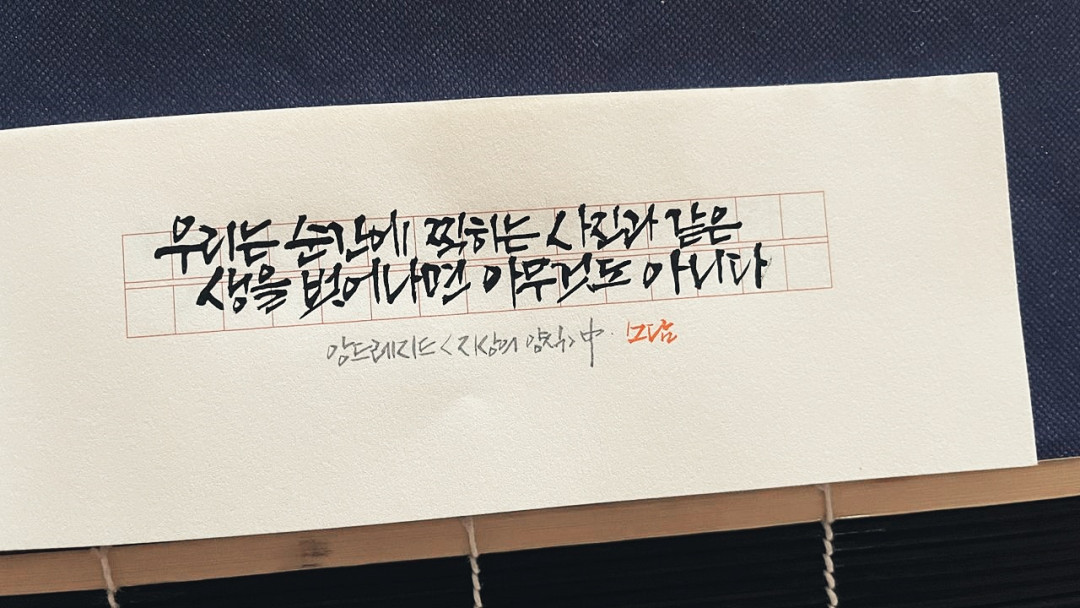 우리는 순간에 찍히는 사진과 같은
생을 벗어나면 아무것도 아니다
앙드레지드 <지상의 양식> 中. 모담